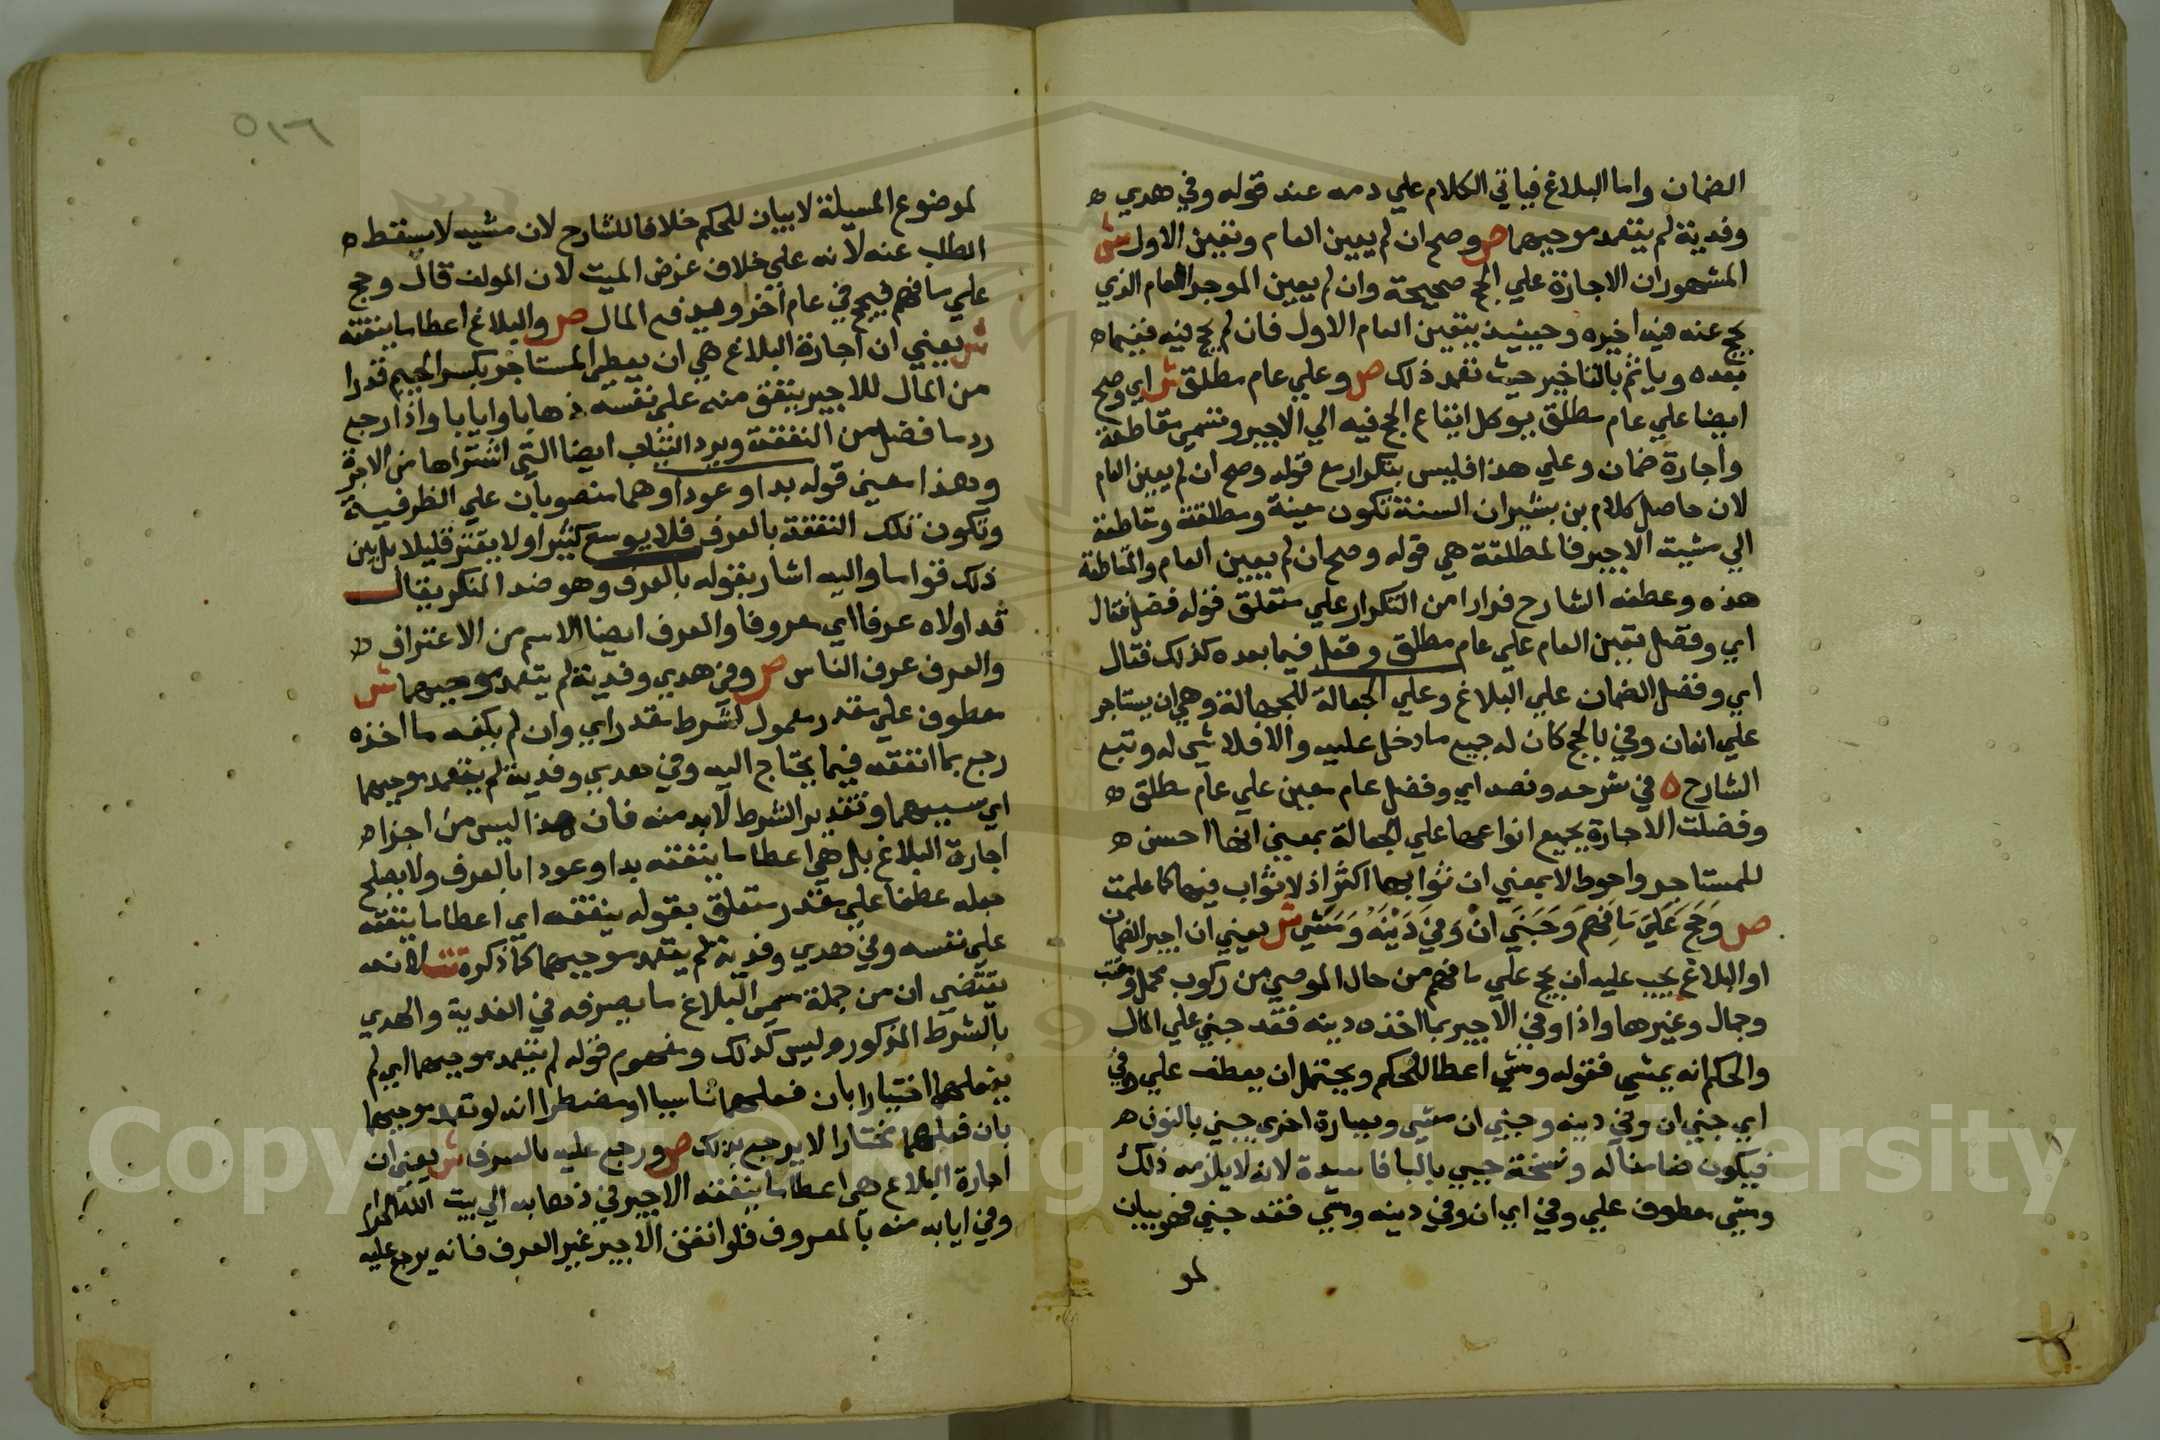 الضمان واما البلاغ فياتي الكلام علي دمه عند قوله وفي هدي ه
وفدية لم يتعمد موجبهما ص وصح ان لم يعين العام وتعين الاول ش
المشهور ان الاجازة علي الحج صحيحة وان لم يعين الموجر العام الذي
يحج عنه فيه اخيره وحينيذ يتعين العام الاول فان لم يحج فيه فيما ه
بعده وياثم بالتاخير حيث تعمد ذلك ص وعلي عام مطلق ش اي وصح
ايضا علي عام مطلق يوكل ايقاع الحج فيه الي الاجير وتسمي مقاطعة
واجارة ضمان وعلي هذا فليس بتكرار مع قوله وصح ان لم يعين العام
لان حاصل كلام بن بشير ان السنة تكون معينة ومطلقة ومقاطعة
الي مشيية الاجير فالمطلقة هي قوله وصح ان لم يعين العام والمقاطعة
هذه وعطفه الشارح فرارا من التكرار علي متعلق قوله فضل فقال
اي وفضل تعين العام علي عام مطلق وفعل فيما بعده كذلك فقال
اي وفضل الضمان علي البلاغ وعلي الجعالة للجهالة وهي ان يستاجر
علي انه ان وفي بالحج كان له جميع ما دخل عليه والا فلا شي له وتبع
الشارح ه في شرحه ونصه اي وفضل عام معين علي عام مطلق ه
وفضلت الاجارة بجميع انواعها علي الجعالة بمعني انها احسن ه
للمستاجر واحوط لا بمعني ان ثوابها اكثر اذ لا ثواب فيها كما علمت
ص وَحَجَّ عَلَيَ مَا فُهِمَ وَجَنَي انْ وَفيَ دَيْنَهُ وَمَشَي ش يعني ان اجير الضمان
او البلاغ يجب عليه ان يحج علي ما فهم من حال الموصي من ركوب محمل وقتب
وجمال وغيرها واذا وفي الاجير بما اخذه دينه فقد جني علي المال
والحكم انه يمشي فقوله ومشي اعطا للحكم ويحتمل ان يعطف علي وفي
اي جني ان وفي دينه وجني ان مشي وبعبارة اخري جني بالنون ه
فيكون ضامنا له ونسخة جبي بالبا فاسدة لانه لا يلزمه ذلك
ومشي معطوف علي وفي اي ان وفي دينه ومشي فقد جني فهو بيان
لمو
٥١٦
لموضوع المسيلة لا بيان للحكم خلافا للشارح لان مشيه لا يسقط ه
الطلب عنه لانه علي خلاف غرض الميت لان المولف قال وحج
علي ما فهم فيحج في عام اخر وهيد فع المال ص والبلاغ اعطا ما ينفقه
ش يعني ان اجارة البلاغ هي ان يعطي المستاجر بكسر الجيم قدرا
من المال للاجير ينفق منه علي نفسه ذهابا وايابا واذا رجع
رد ما فضل من النفقة ويرد الثياب ايضا التي اشتراها من الاجرة
وهذا معني قوله بدا وعودا وهما منصوبان علي الظرفية
وتكون تلك النفقة بالعرف فلا يوسع كثيرا ولا يقتر قليلا بل بين
ذلك قواما واليه اشار بقوله بالعرف وهو ضد المنكر يقال
قد اولاه عرفا اي معروفا والعرف ايضا الاسم من الاعتراف ه
والعرف عرف الناس ص وفي هدي وفدية لم يتعمد موجبهما ش
معطوف علي مقدر معمول لشرط مقدر اي وان لم يكفه ما اخذه
رجع بما انفقه فيما يحتاج اليه وفي هدي وفدية لم يتعمد موجبهما
اي سببهما وتقدير الشرط لابد منه فان هذا ليس من اجزا ه
اجارة البلاغ بل هي اعطا ما ينفقه بدا وعودا بالعرف ولا يصلح
جعله عطفا علي مقدر متعلق بقوله ينفقه اي اعطا ما ينفقه
علي نفسه وفي هدي وفدية لم يتعمد موجبهما كما ذكره تت لانه
يقتضي ان من جملة مسمي البلاغ ما يصرفه في الفدية والهدي
بالشرط المذكور وليس كذلك ومفهوم قوله لم يتعمد موجبهما اي لم
يفعلهما اختيارا بان فعلهما ناسيا او مضطرا انه لو تعمد موجبهما
بان فعلهما مختارا لا يرجع بذلك ص ورجع عليه بالسرف ش يعني ان
اجارة البلاغ هي اعطا ما ينفقه الاجير في ذهابه الي بيت الله الحرام
وفي ايابه منه بالمعروف فلو انفق الاجير غير العرف فانه يرجع عليه
Copyright © King Saud University